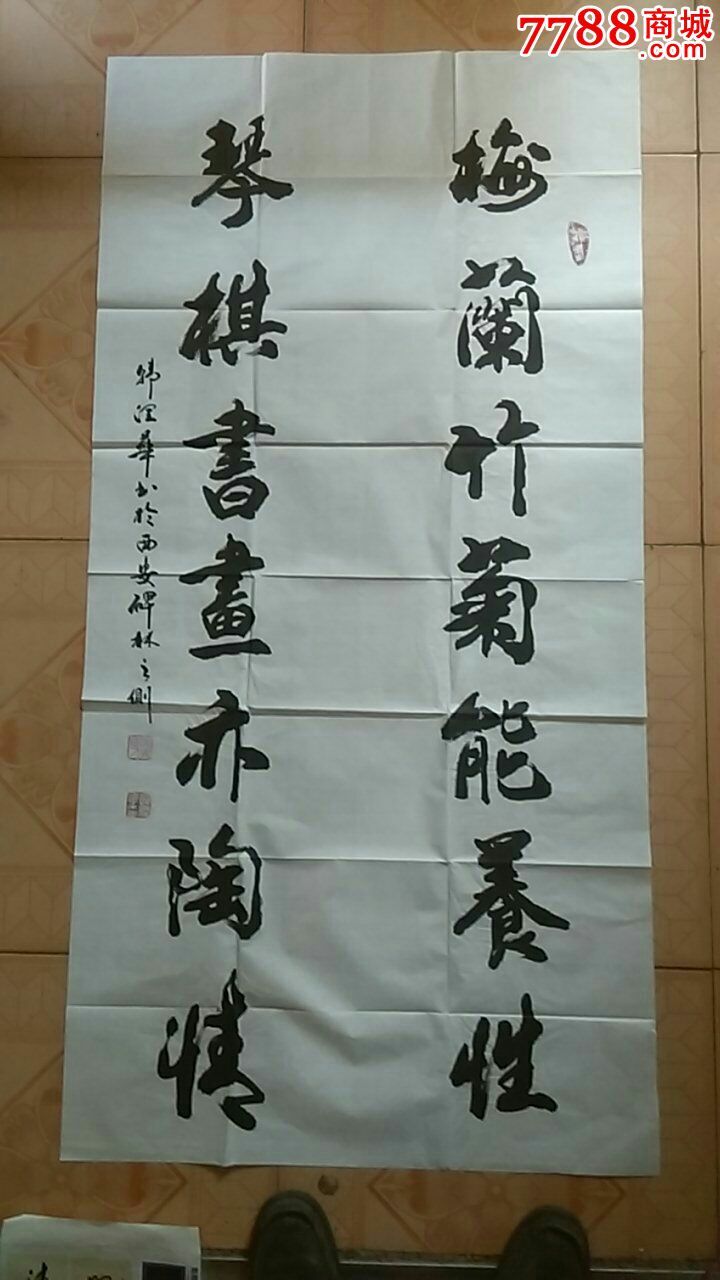 7788商城
.com
梅蘭竹菊能養性
琴棋書畫亦陶情
韩淫華书於西安碑林之側